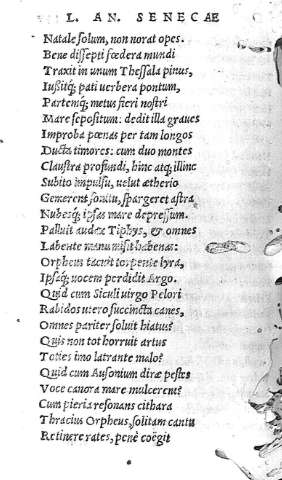 L. AN. SENECAE
Natale solum, non norat opes.
Bene dissepti fœdera mundi
Traxit in unum Thessala pinus,
Iußitq́; pati uerbera pontum,
Partemq́; metus fieri nostri
Mare sepositum: dedit illa graues
Improba pœnas per tam longos
Ducta timores: cum duo montes
Claustra profundi, hinc atq; illinc
Subito impulsu, uelut ætherio
Gemerent sonitu, spargeret astra,
Nubesq́; ipsas mare depressum.
Palluit audax Tiphys, & omnes
Labente manu misit habenas:
Orpheus tacuit torpente lyra,
Ipsaq́; uocem perdidit Argo.
Quid cum Siculi uirgo Pelori
Rabidos utero succincta canes,
Omnes pariter soluit hiatus?
Quis non tot horruit artus
Toties imo latrante malo?
Quid cum Ausonium diræ pestes
Voce canora mare mulcerent?
Cum pieria resonans cithara
Thracius Orpheus, solitam cantu
Retinere rates, penè coëgit